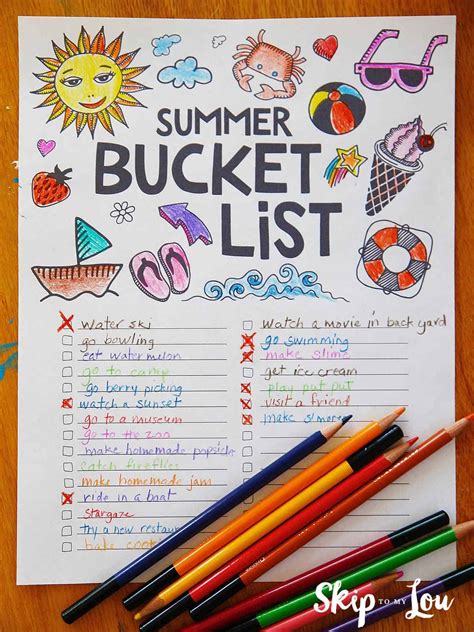 SUMMER
BUCKET
LiST
water ski
go bowling
eat water melon
go to camp
go berry picking
watch a sunset
go to a museum
go to the zoo
make homemade popsicles
catch fireflies
make homemade jam
ride in a boat
Stargaze
try a new restaur
bake cook
watch a movie in back yard
go swimming
make slime
get ice cream
play put put
visit a friend
make s'mores
SKIP TO MY LOU